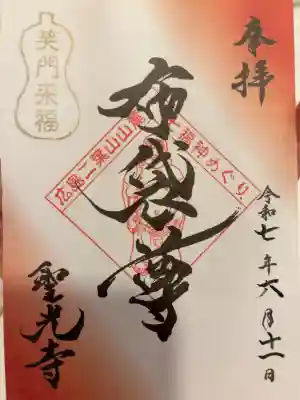 奉拝
令和七年六月十一日
布袋尊
広島二葉山山麓七福神めぐり
笑門来福
聖光寺